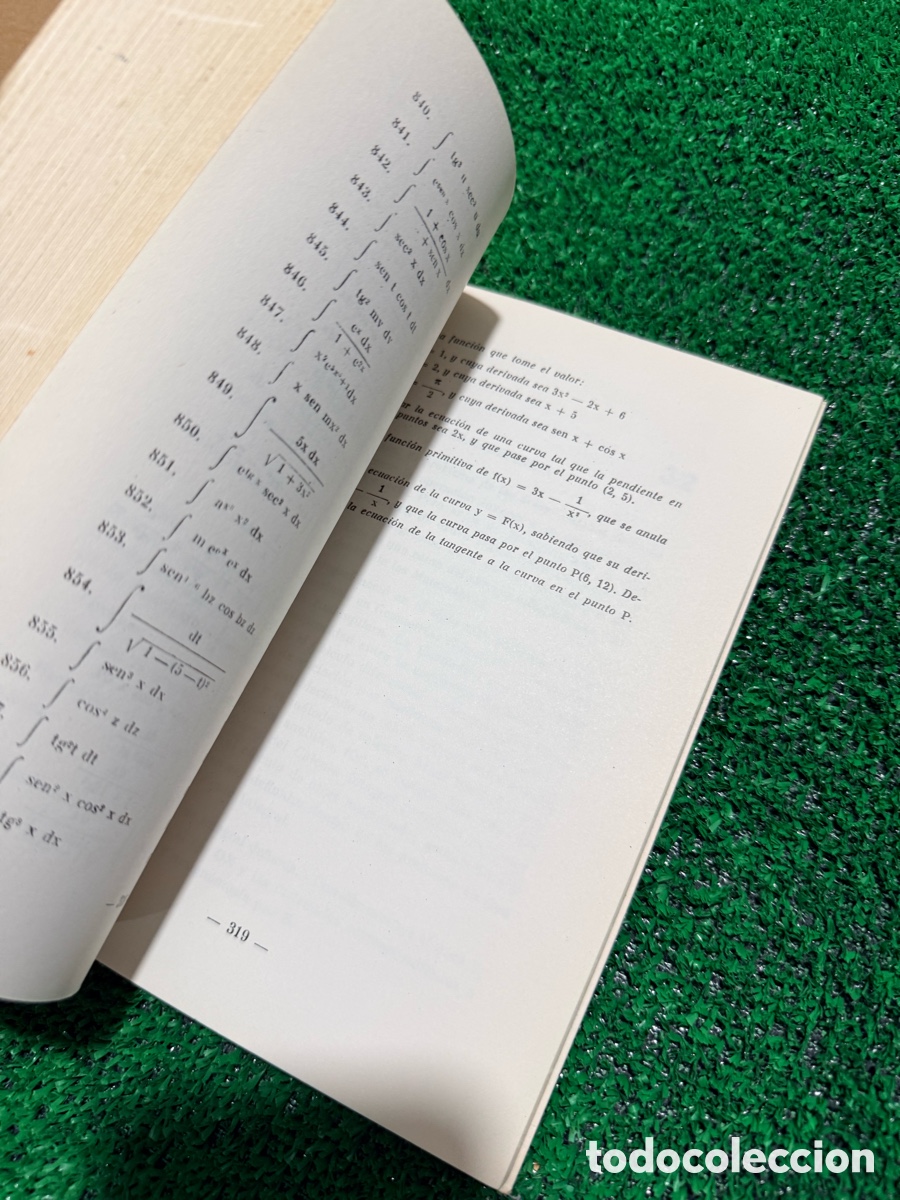 840. ∫ tg³ u sec² u du
841. ∫ cos x dx
842. ∫ 1 + cos x / + sen x
843. ∫ sec² x dx
844. ∫ sen t cos t dt
845. ∫ tg² mv dv
846. ∫ eˣ dx / 1 + e²ˣ
847. ∫ dx
848. ∫ x sen mx² dx
849. ∫ 5x dx / √1 + 3x²
850. ∫ sec² x dx
851. ∫ x² dx
852. ∫ eˣ dx
853. ∫ bz cos bz dz
854. ∫ dt / √1 — (5 — t)²
855. ∫ sen² x dx
856. ∫ cos⁴ z dz
∫ tg²t dt
∫ sen² x cos² x dx
tg³ x dx
función que tome el valor:
1, y cuya derivada sea 3x² — 2x + 6
2, y cuya derivada sea x + 5
π/2, y cuya derivada sea sen x + cos x
la ecuación de una curva tal que la pendiente en
puntos sea 2x, y que pase por el punto (2, 5).
función primitiva de f(x) = 3x — 1/x², que se anula
ecuación de la curva y = F(x), sabiendo que su deri-
— 1/x, y que la curva pasa por el punto P(6, 12). De-
la ecuación de la tangente a la curva en el punto P.
— 319 —
todocoleccion